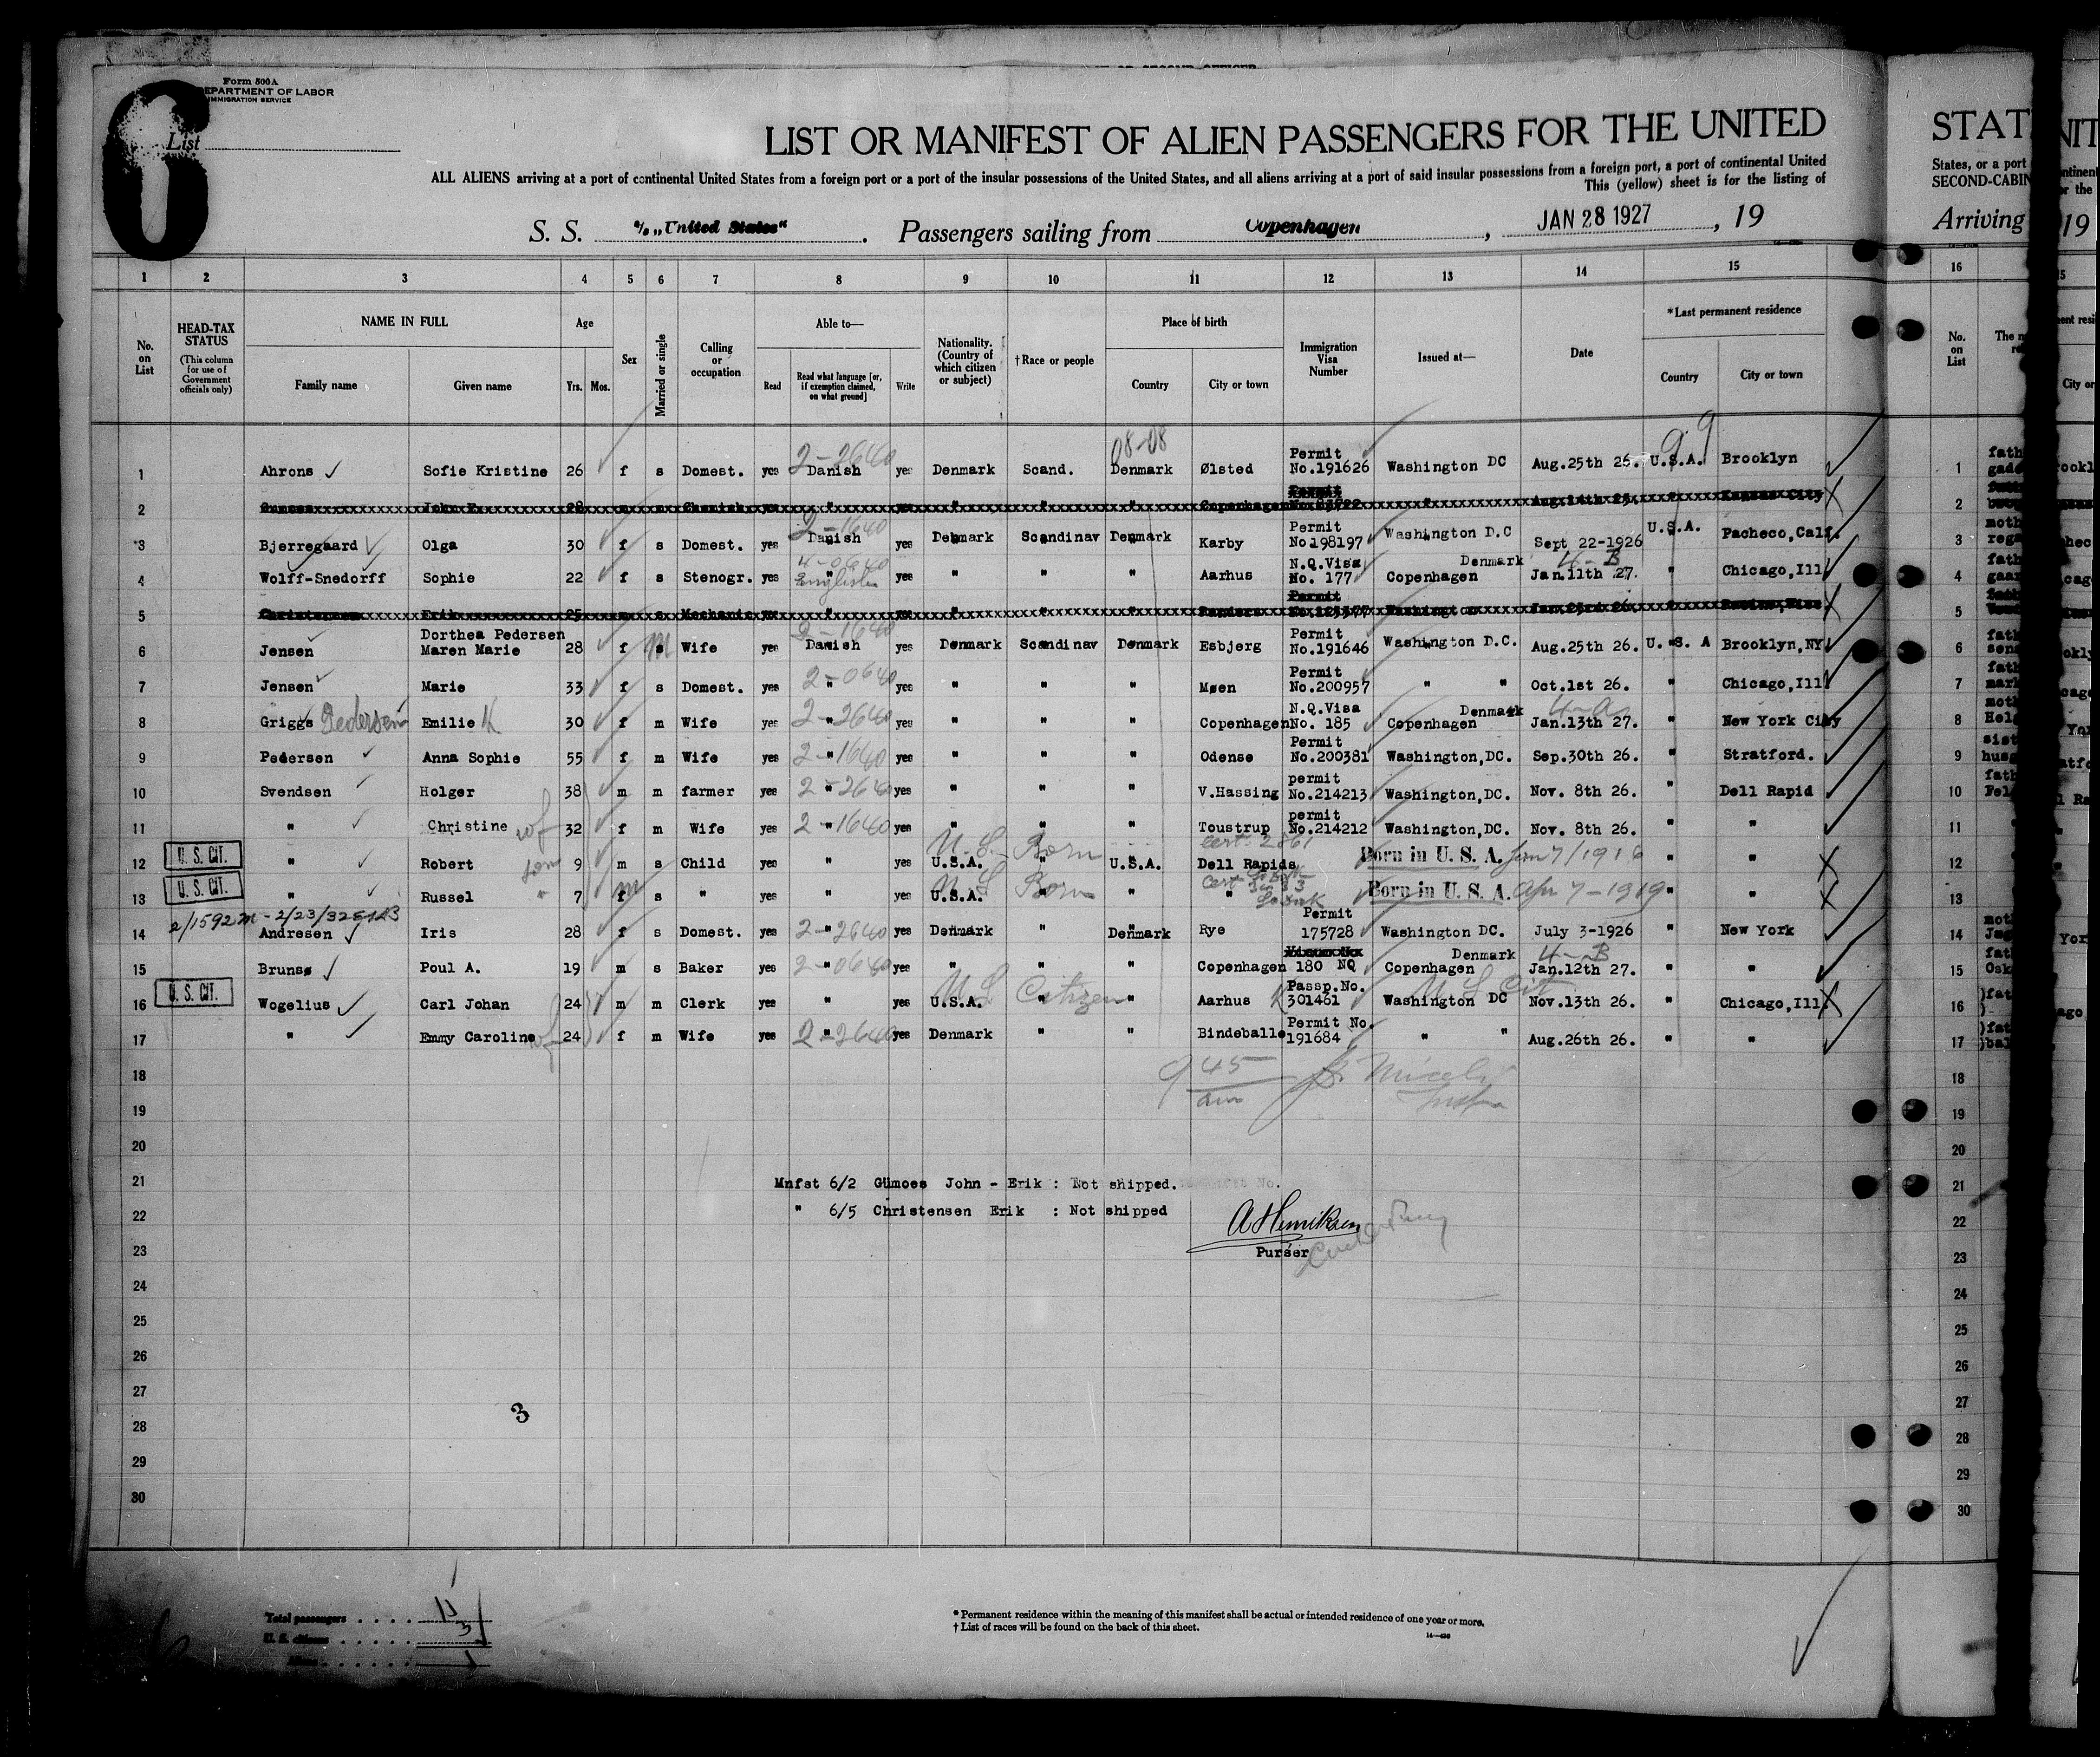 Form 500A
DEPARTMENT OF LABOR
IMMIGRATION SERVICE
6
List
LIST OR MANIFEST OF ALIEN PASSENGERS FOR THE UNITED
ALL ALIENS arriving at a port of continental United States from a foreign port or a port of the insular possessions of the United States, and all aliens arriving at a port of said insular possessions from a foreign port, a port of continental United
This (yellow) sheet is for the listing of
S. S. s/s „United States" . Passengers sailing from Copenhagen , JAN 28 1927 , 19
1 2 3 4 5 6 7 8 9 10 11 12 13 14 15
No. on List
HEAD-TAX STATUS
(This column for use of Government officials only)
NAME IN FULL
Family name Given name
Age
Yrs. Mos.
Sex
Married or single
Calling or occupation
Able to—
Read
Read what language [or, if exemption claimed, on what ground]
Write
Nationality. (Country of which citizen or subject)
†Race or people
Place of birth
Country City or town
Immigration Visa Number
Issued at—
Date
*Last permanent residence
Country City or town
08-08
99
1 Ahrons Sofie Kristine 26 f s Domest. yes 2-2640 Danish yes Denmark Scand. Denmark Ølsted Permit No.191626 Washington DC Aug.25th 26. U.S.A. Brooklyn
2 John Copenhagen Kansas City
3 Bjerregaard Olga 30 f s Domest. yes 2-1640 Danish yes Denmark Scandinav Denmark Karby Permit No198197 Washington D.C Sept 22-1926 U.S.A. Pacheco,Calif.
4 Wolff-Snedorff Sophie 22 f s Stenogr. yes " English yes " " " Aarhus N.Q.Visa No. 177 Copenhagen Denmark Jan.11th 27. 4-B " Chicago,Ill
5 Christensen Erik 25 m s Mechanic yes " yes " " " Randers Permit Washington "
6 Jensen Dorthea Pedersen Maren Marie 28 f m Wife yes 2-1640 Danish yes Denmark Scandinav Denmark Esbjerg Permit No.191646 Washington D.C. Aug.25th 26. U.S.A Brooklyn,NY
7 Jensen Marie 33 f s Domest. yes 2-0640 " yes " " " Møen Permit No.200957 " " Oct.1st 26. " Chicago,Ill
8 Griggs Pedersen Emilie K 30 f m Wife yes 2-2640 " yes " " " Copenhagen N.Q.Visa No. 185 Copenhagen Denmark Jan.13th 27. " New York City
9 Pedersen Anna Sophie 55 f m Wife yes 2-1640 " yes " " " Odense Permit No.200381 Washington,DC. Sep.30th 26. " Stratford.
10 Svendsen Holger 38 m m farmer yes 2-2640 " yes " " " V.Hassing permit No.214213 Washington,DC. Nov. 8th 26. " Dell Rapid
11 " Christine wf 32 f m Wife yes 2-1640 " yes " " " Toustrup permit No.214212 Washington,DC. Nov. 8th 26. " "
12 U. S. CIT. " Robert son 9 m s Child yes " yes U.S.A. U.S. Born " U.S.A. Dell Rapids Born in U. S. A. " "
13 U. S. CIT. " Russel " 7 f m s " yes " yes U.S.A. U.S. Born " " " Born in U. S. A. Apr 7-1919 " "
14 Andresen Iris 28 f s Domest. yes 2-2640 " yes Denmark " Denmark Rye Permit 175728 Washington DC. July 3-1926 " New York
15 Brunsø Poul A. 19 m s Baker yes 2-0640 " yes " " " Copenhagen 180 NQ Copenhagen Denmark Jan.12th 27. 4-B " "
16 U. S. CIT. Wogelius Carl Johan 24 m m Clerk yes " yes U.S.A. US Citizen " " Aarhus Passp.No. 301461 Washington DC US Cit Nov.13th 26. " Chicago,Ill.
17 " Emmy Caroline wf 24 f m Wife yes 2-2640 " yes Denmark " " Bindeballe Permit No. 191684 " " Aug.26th 26. " "
18
9 45 am
19
20
21 Mnfst 6/2 Gumoes John - Erik : Not shipped.
22 " 6/5 Christensen Erik : Not shipped
A Henriksen
23 Purser
24
25
26
27
3
28
29
30
Total passengers
U. S. citizens
Aliens
* Permanent residence within the meaning of this manifest shall be actual or intended residence of one year or more.
† List of races will be found on the back of this sheet.
STAT
States, or a port
SECOND-CABIN
Arriving
16
No. on List
1
2
3
4
5
6
7
8
9
10
11
12
13
14
15
16
17
18
19
20
21
22
23
24
25
26
27
28
29
30
19